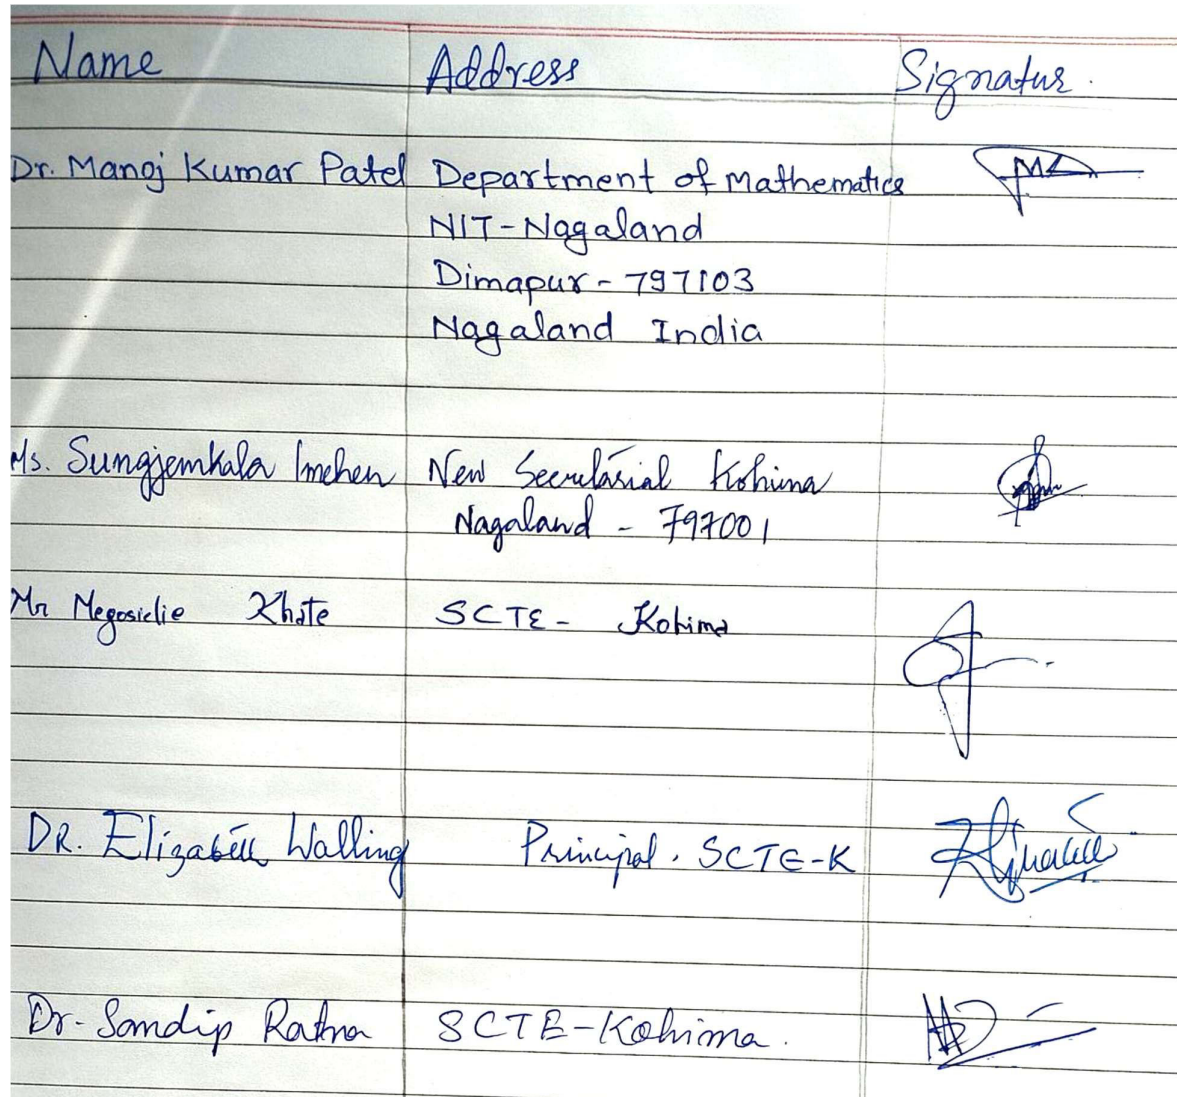 Name Address Signatur.
Dr. Manoj Kumar Patel Department of Mathematics
NIT-Nagaland
Dimapur - 797103
Nagaland India
Ms. Sungjemkala Imchen New Secretarial Kohima
Nagaland - 797001
Mr Megosielie Khate SCTE - Kohima
DR. Elizabeth Walling Principal. SCTE-K
Dr. Sandip Ratna SCTE-Kohima.